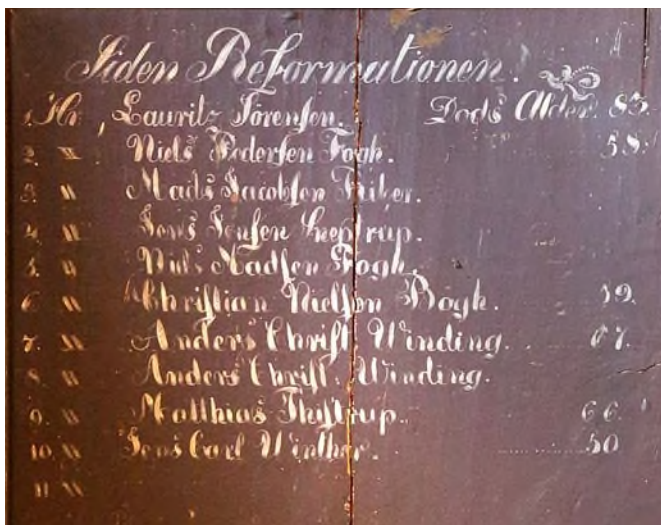 Siden Reformationen.
1. Hr. Lauritz Sørensen. Døds Alder. 83.
2. " Niels Pedersen Fogh. 58.
3. " Mads Jacobsen
4. " Jens Jensen Sneptrup.
5. " Niels Madsen Fogh.
6. " Christian Nielsen Bøgh. 59.
7. " Anders Christ. Winding. 67.
8. " Anders Christ. Winding.
9. " Matthias Thistrup. 66.
10. " Jens Carl Winther. 50
11. "